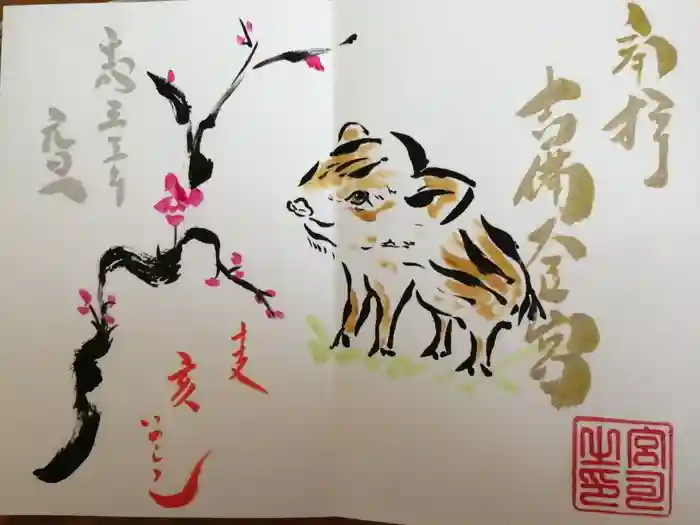 奉拝
吉備金宮
平成三十一年
元旦
亥
いのしし
宮司之印